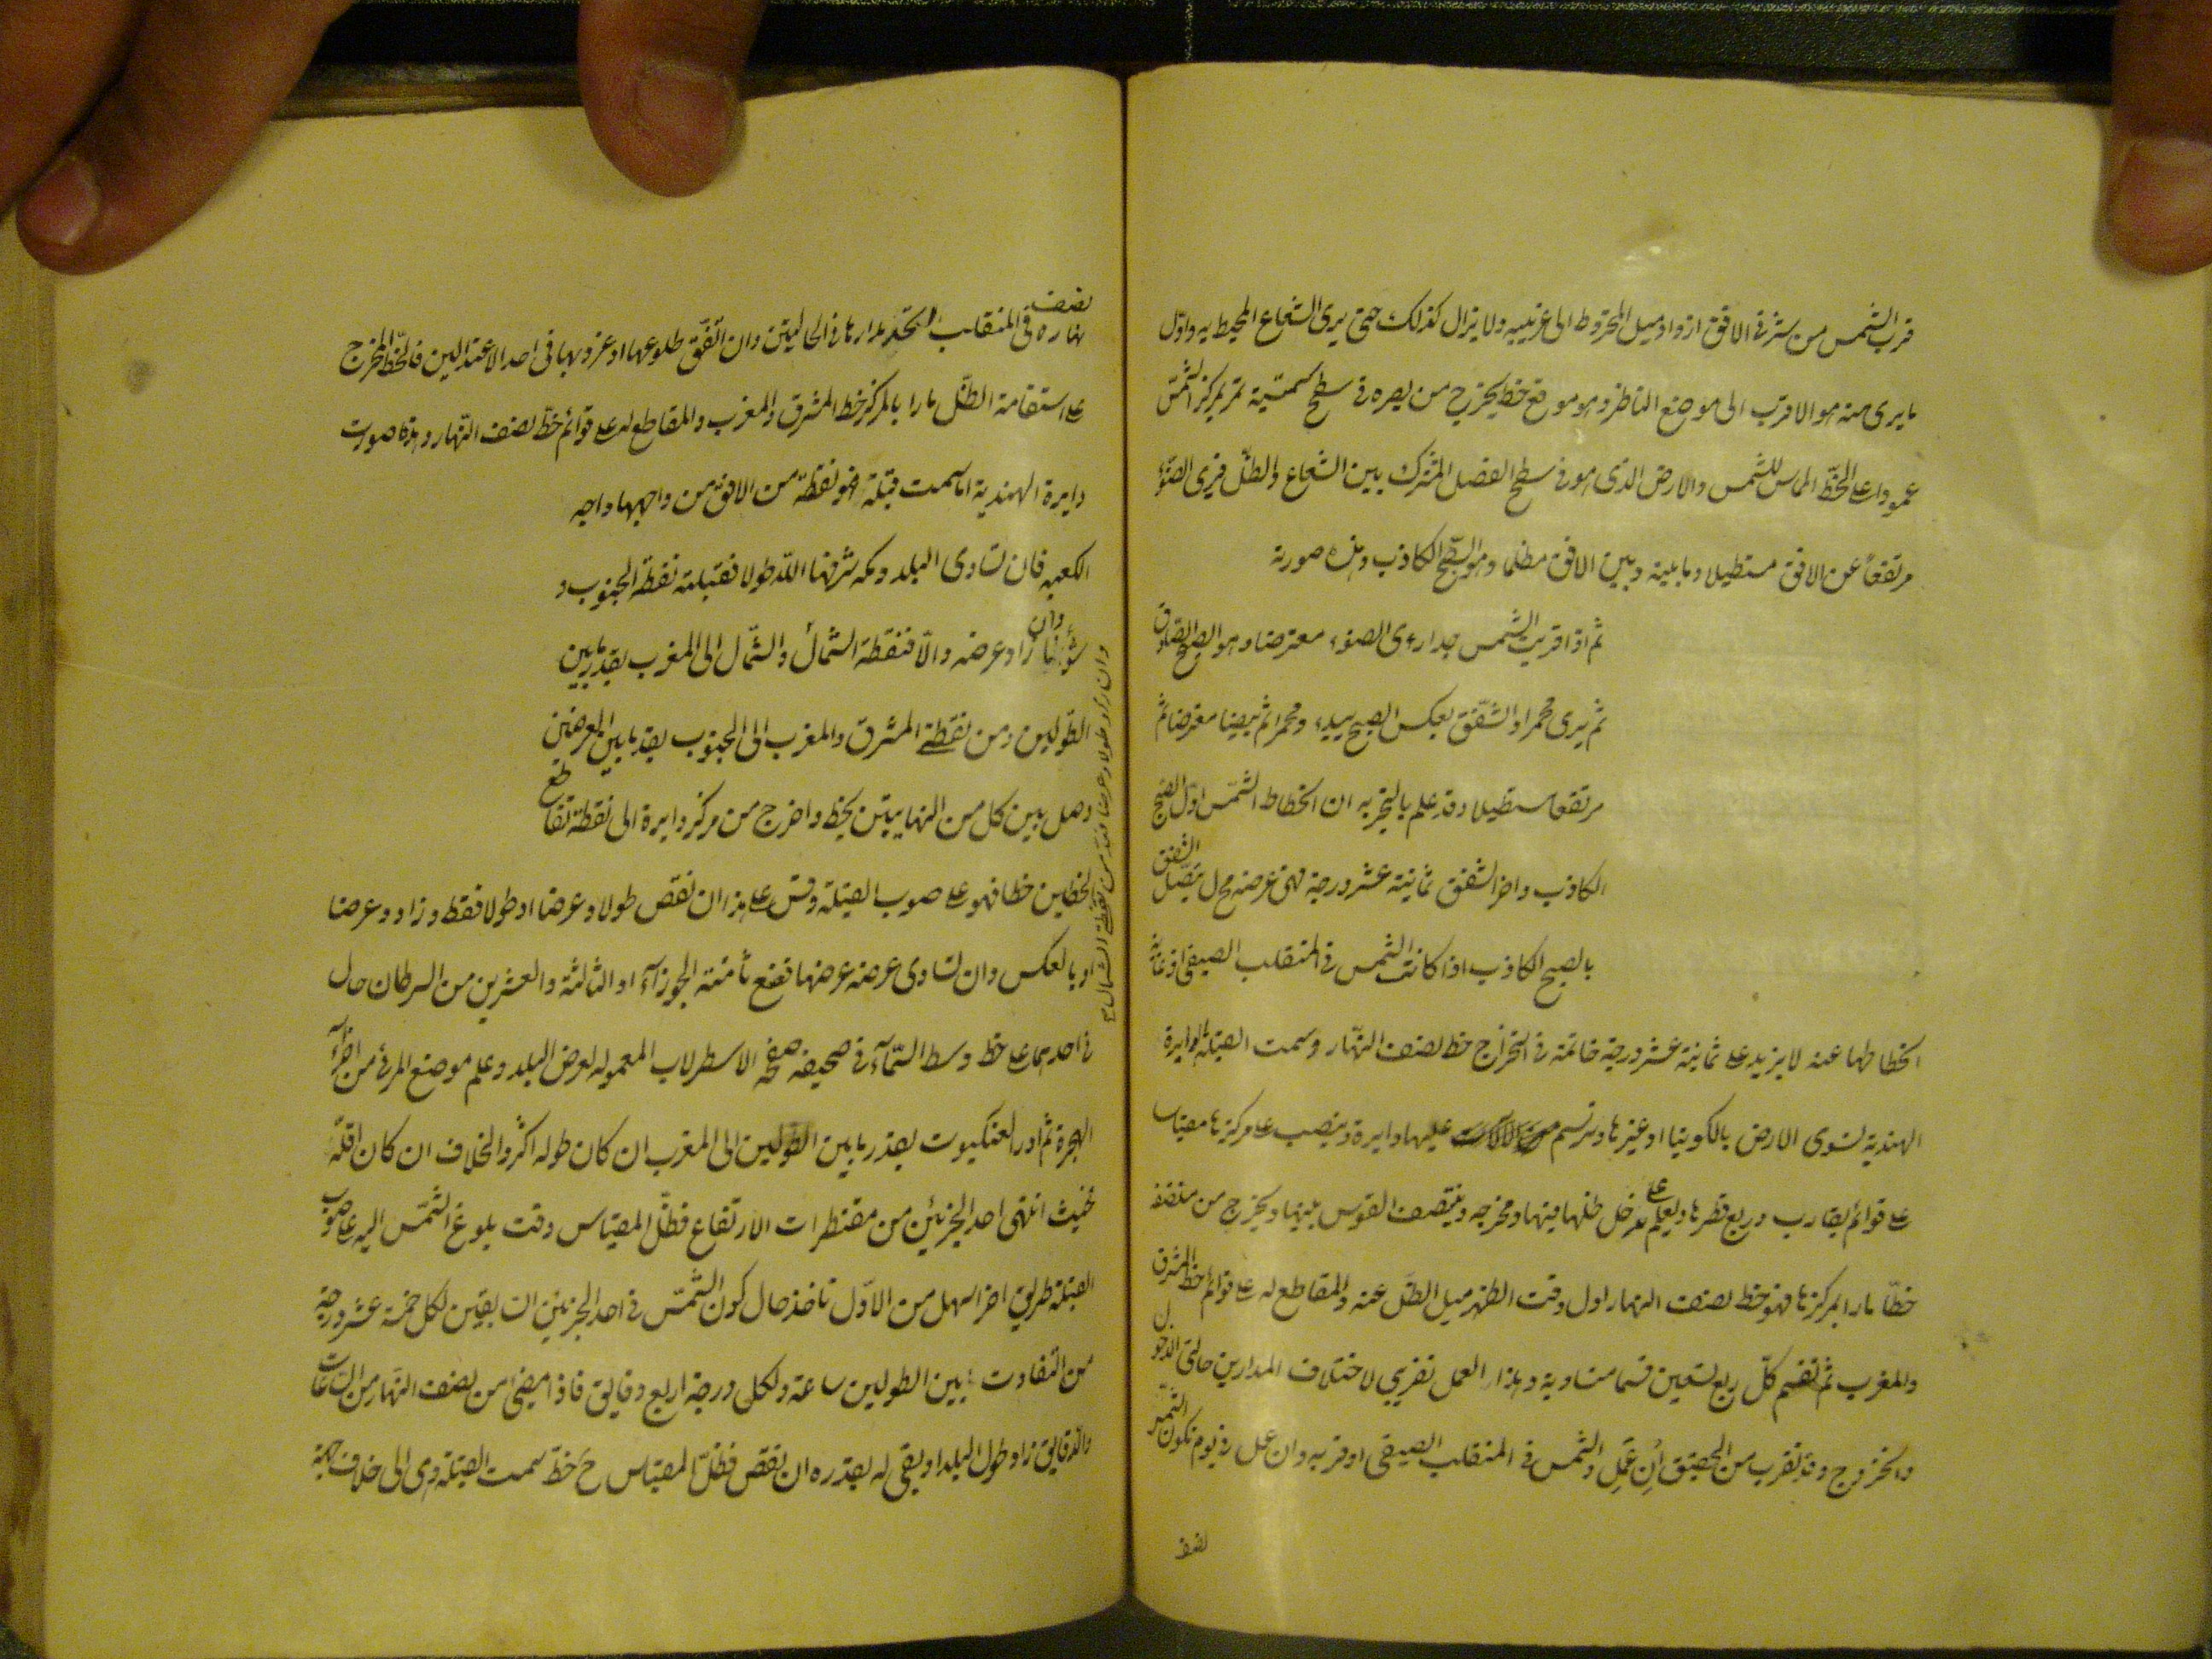 قرب الشمس من شرقى الافق ازداد ميل المخروط الى غربيه ولا يزال كذلك حتى يرى الشعاع المحيط به واول
ما يرى منه هو الاقرب الى موضع الناظر وهو موقع خط يخرج من بصره فى سطح سمتية تمر بمركز الشمس
عمودا على الخط المماس للشمس والارض الذى هو فى سطح الفصل المشترك بين الشعاع والظل فيرى الضوء
مرتفعا عن الافق مستطيلا وما بينه وبين الافق مظلما وهو الصبح الكاذب وهذه صورته
ثم اذا قربت الشمس جدا رءى الضوء معترضا وهو الصبح الصادق
ثم يرى محمرا والشفق بعكس الصبح يبدء محمرا ثم مبيضا معترضا ثم
مرتفعا مستطيلا وقد علم بالتجربه ان انحطاط الشمس اول الصبح
الكاذب واخر الشفق ثمانية عشر درجة ففى عرضه مح ل يتصل الشفق
بالصبح الكاذب اذا كانت الشمس فى المنقلب الصيفى اذ غاية
انحطاطها عنه لا يزيد على ثمانية عشر درجة خاتمة فى استخراج خط نصف النهار وسمت القبلة الدايرة
الهندية تسوى الارض بالكونيا او غيرها وترسم عليها دايرة وينصب على مركزها مقياس
على قوائم يقارب ربع قطرها ويعلم على مدخل ظلها فيها ومخرجه وينتصف القوس بينهما ويخرج من منتصفه
خطا مارا بمركزها فهو خط نصف النهار اول وقت الظهر ميل الظل عنه والمقاطع له على قوائم خط المشرق
والمغرب ثم تقسم كل ربع تسعين قسما متساوية وهذا العمل تقريبى لاختلاف المدارين حالتى الدخول
والخروج وقد تقرب من التحقيق ان عمل والشمس فى المنقلب الصيفى او قربه وان عمل فى يوم تكون الشمس
نصف
نصف نهاره فى المنقلب اتحد مدارها فى الحاليتن وان اتفق طلوعها او غروبها فى احد الاعتدالين فالخط المخرج
على استقامة الظل مارا بالمركز خط المشرق والمغرب والمقاطع له على قوائم خط نصف النهار وهذه صورت
دايرة الهندية اما سمت قبلة فهو نقطة من الافق من واجهها واجه
الكعبه فان تساوى البلد ومكه شرفها الله طولا فقبلته نقطة الجنوب و
ان زاد عرضه والا فنقطة الشمال والشمال الى المغرب بقدر ما بين
الطولين ومن نقطتى المشرق والمغرب الى الجنوب بقدر ما بين العرضين
وصل بين كل من النهايتين بخط واخرج من مركز دايرة الى نقطة تقاطع
الخطين خطا فهو على صوب القبلة وقس على هذا ان نقص طولا وعرضا او طولا فقط وزاد عرضا
او بالعكس وان تساوى عرضه عرضها فضع ثامنة الجوزآء او الثالثة والعشرين من السرطان حال
فى احديهما على خط وسط السمآء فى صحيفه الاسطرلاب المعموله لعرض البلد وعلم موضع المرى من اجزآء
الحجرة ثم ادر العنكبوت بقدر ما بين الطولين الى المغرب ان كان طوله اكثر والخلاف ان كان اقل
فحيث انتهى احد الجزئين من مقنطرات الارتفاع فظل المقياس وقت بلوغ الشمس اليه على صوب
القبلة طريق اخر اسهل من الاول تاخذ حال كون الشمس فى احد الجزئين السابقين لكل خمسة عشر درجة
من التفاوت بين الطولين ساعة ولكل درجة اربع دقايق فاذا مضى من نصف النهار من الساعات
والدقايق زاد طول البلد او بقى له بقدره ان نقص فظل المقياس ح خط سمت القبلة وهى الى خلاف جهة
وان زاد طولا وعرضا فعد من نقطتى الشمال